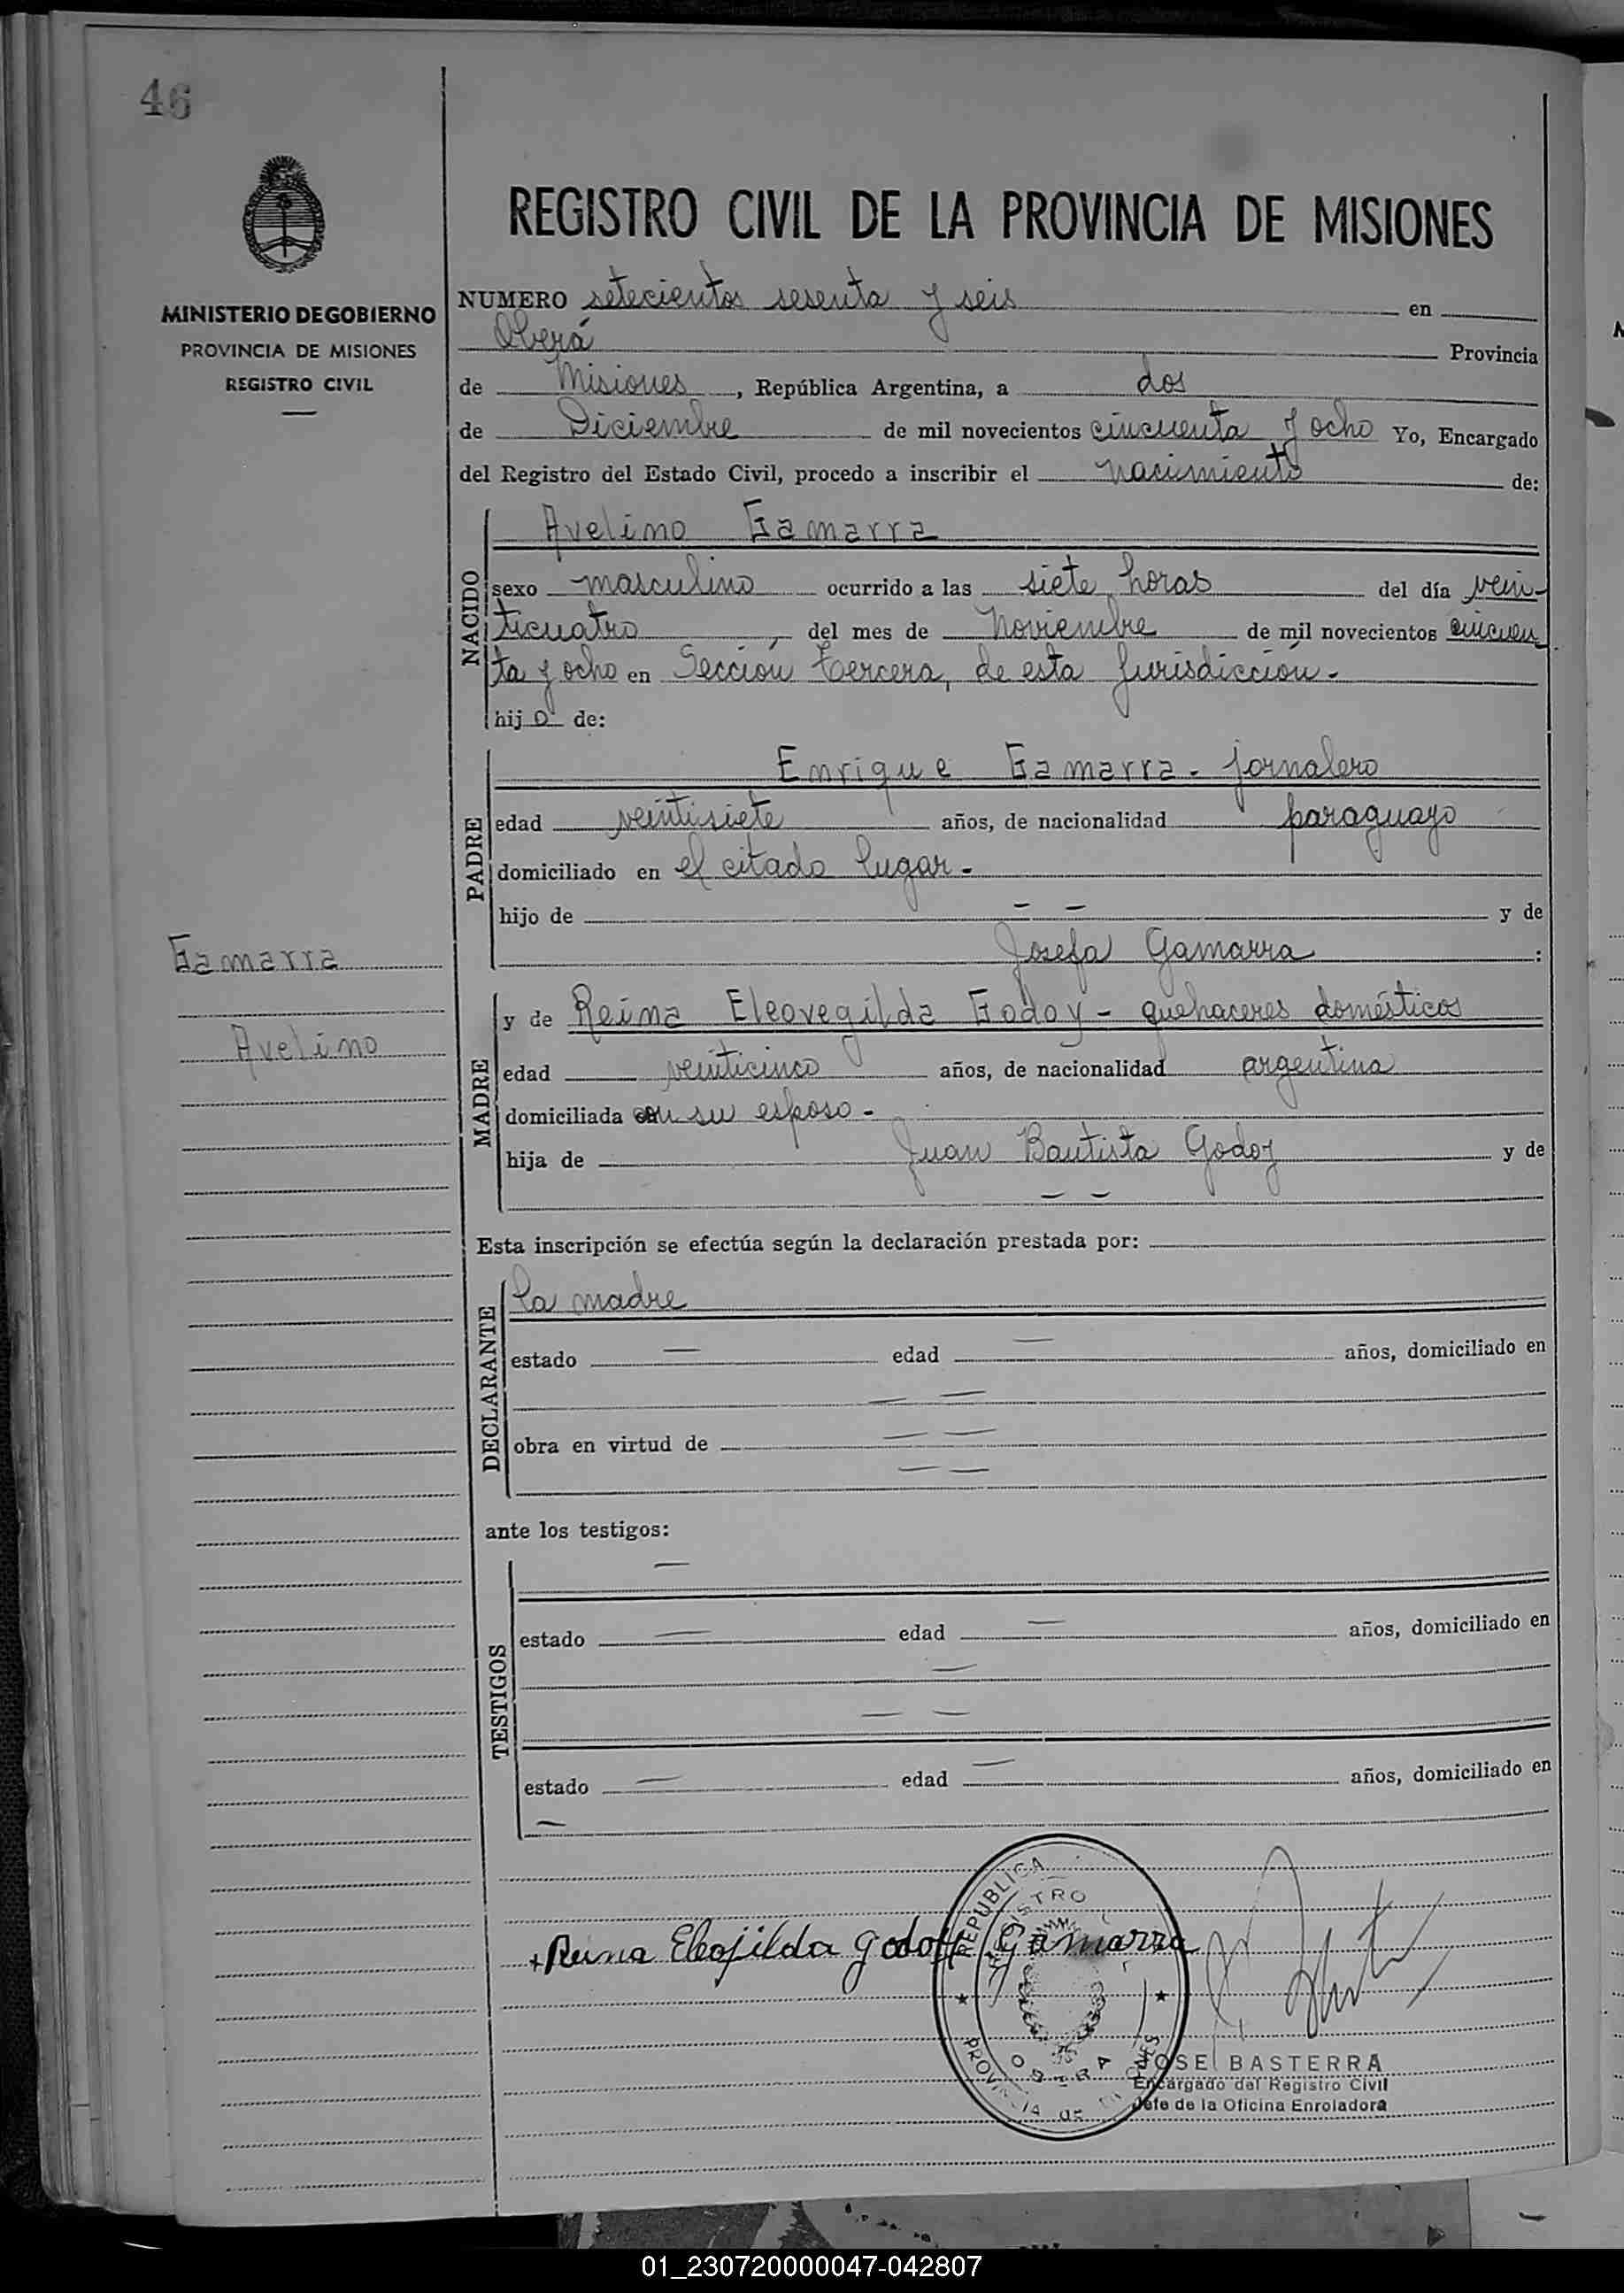 46
REGISTRO CIVIL DE LA PROVINCIA DE MISIONES
MINISTERIO DE GOBIERNO
PROVINCIA DE MISIONES
REGISTRO CIVIL
NUMERO setecientos sesenta y seis en
Oberá Provincia
de Misiones, República Argentina, a dos
de Diciembre de mil novecientos cincuenta y ocho Yo, Encargado
del Registro del Estado Civil, procedo a inscribir el nacimiento de:
NACIDO
Avelino Gamarra
sexo masculino ocurrido a las siete horas del día vein-
ticuatro, del mes de Noviembre de mil novecientos cincuen
ta y ocho en Sección tercera, de esta Jurisdicción.-
hijo de:
PADRE
Enrique Gamarra - jornalero
edad veintisiete años, de nacionalidad paraguayo
domiciliado en el citado lugar -
hijo de - - y de
Josefa Gamarra :
Gamarra
Avelino
MADRE
y de Reina Eleovegilda Godoy - quehaceres domésticos
edad veinticinco años, de nacionalidad argentina
domiciliada con su esposo -
hija de Juan Bautista Godoy y de
- -
Esta inscripción se efectúa según la declaración prestada por:
DECLARANTE
la madre
estado — edad — años, domiciliado en
— —
obra en virtud de — —
— —
ante los testigos:
TESTIGOS
—
estado — edad — años, domiciliado en
—
— —
estado — edad — años, domiciliado en
—
+Reina Eleojilda Godoy Gamarra
REPUBLICA
REGISTRO
OBERA
PROVINCIA DE MISIONES
JOSE BASTERRA
Encargado del Registro Civil
Jefe de la Oficina Enroladora
01_230720000047-042807